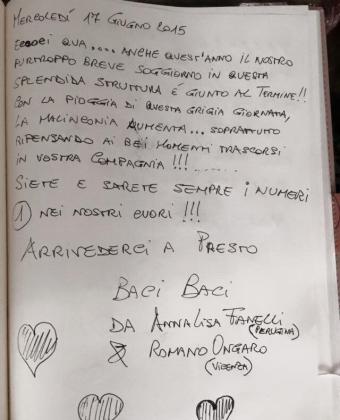 MERCOLEDÌ 17 GIUGNO 2015
ECCOCI QUA.... ANCHE QUEST'ANNO IL NOSTRO
PURTROPPO BREVE SOGGIORNO IN QUESTA
SPLENDIDA STRUTTURA È GIUNTO AL TERMINE!!
CON LA PIOGGIA DI QUESTA GRIGIA GIORNATA,
LA MALINCONIA AUMENTA... SOPRATTUTTO
RIPENSANDO AI BEI MOMENTI TRASCORSI
IN VOSTRA COMPAGNIA!!!......
SIETE E SARETE SEMPRE I NUMERI
1 NEI NOSTRI CUORI!!!
ARRIVEDERCI A PRESTO
BACI BACI
DA ANNALISA FANELLI
(PERUGINA)
& ROMANO ONGARO
(VICENZA)